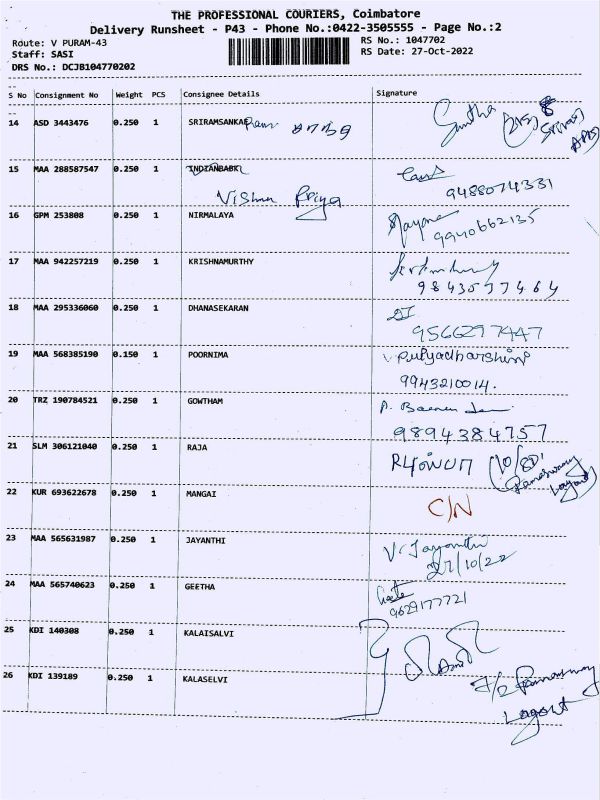 THE PROFESSIONAL COURIERS, Coimbatore
Delivery Runsheet - P43 - Phone No.:0422-3505555 - Page No.:2
Route: V PURAM-43 RS No.: 1047702
Staff: SASI RS Date: 27-Oct-2022
DRS No.: DCJB104770202
S No Consignment No Weight PCS Consignee Details Signature
14 ASD 3443476 0.250 1 SRIRAMSANKAR
15 MAA 288587547 0.250 1 INDIANBANK
Vishnu Priya 9488074331
16 GPM 253808 0.250 1 NIRMALAYA
9940662135
17 MAA 942257219 0.250 1 KRISHNAMURTHY
9843577464
18 MAA 295336060 0.250 1 DHANASEKARAN
9566297447
19 MAA 568385190 0.150 1 POORNIMA
9943210014.
20 TRZ 190784521 0.250 1 GOWTHAM
9894384757
21 SLM 306121040 0.250 1 RAJA
22 KUR 693622678 0.250 1 MANGAI C/N
23 MAA 565631987 0.250 1 JAYANTHI V. Jayanthi
27/10/22
24 MAA 565740623 0.250 1 GEETHA
9629177721
25 KDI 140308 0.250 1 KALAISALVI
26 KDI 139189 0.250 1 KALASELVI